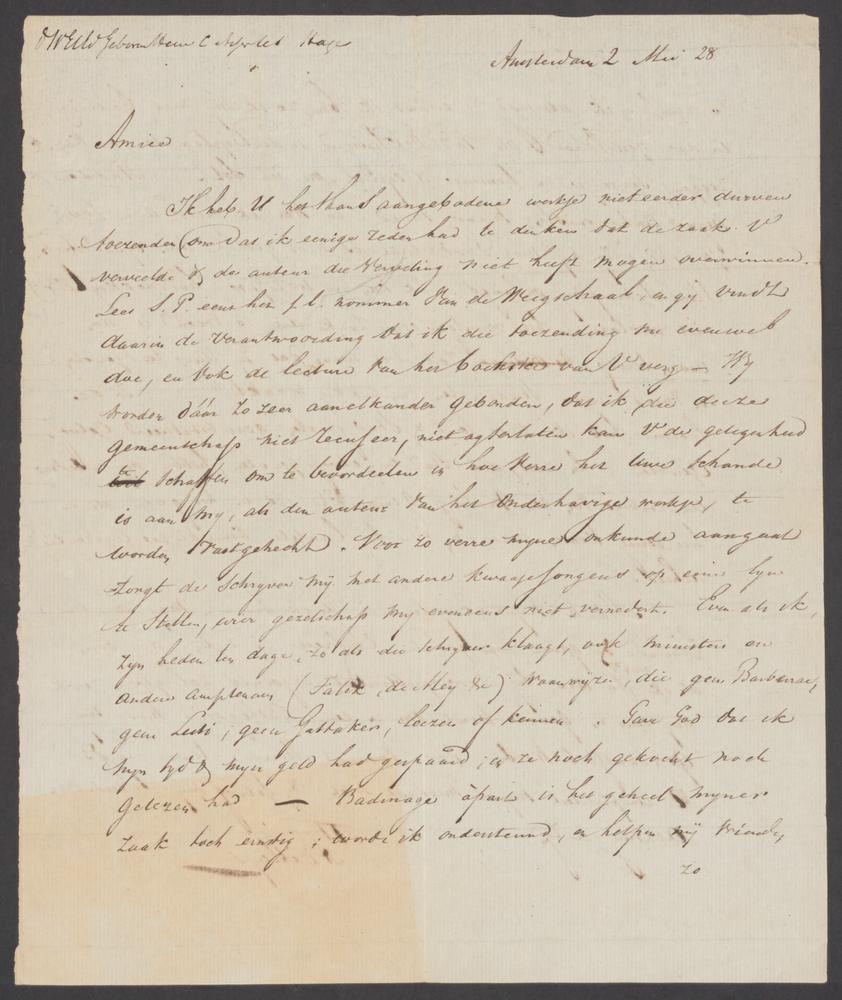 d WEldGeboren Heer C Asser Hage
Amsterdam 2 Mei 28
Amice
Ik heb U het thans aangebodene werkje niet eerder durven
toezenden (om dat ik eenige reden had te denken dat de zaak U
verveelde & de auteur die verveling niet heeft mogen overwinnen.
Lees S. P. eens het f. l. nommer van de Weegschaal, en gy vindt
daarin de verantwoording dat ik die toezending nu evenwel
doe, en ook de lecture van het boekske van U verg – Wy
worden dáár zo zeer aan elkander gebonden, dat ik die deeze
gemeenschap niet recuseer, niet agterlaten kan U de gelegenheid
te schaffen om te beoordeelen in hoe verre het Uwe schande
is aan my, als den auteur van het onderhavige werkje, te
worden vastgehecht. Voor zo verre myne onkunde aangaat
zorgt de schryver mij met andere kwaajejongens op eene lyn
te stellen, wier gezelschap my eveneens niet vernedert. Even als ik,
zyn heden ten dage, zo als die schryver klaagt, ook ministers en
andere amptenaren (Falck, de Mey &c) waanwyzen, die geen Barbeirac,
geen Leti, geen Gattakers, leezen of kennen. Gave God dat ik
myn tyd & myn geld had gespaard; en ze noch gekocht noch
gelezen had — Badinage àpart is het geheel myner
zaak toch ernstig; worde ik ondersteund, en helpen mij vrienden,
zo